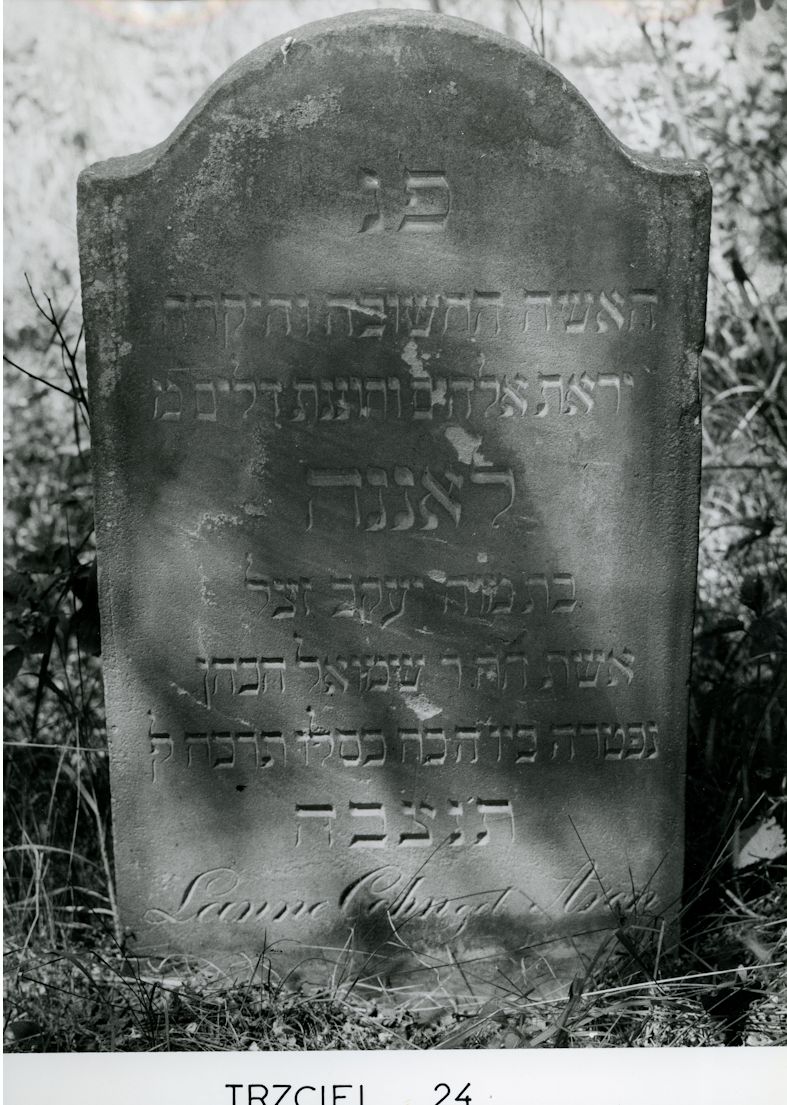 פ נ
האשה החשובה והיקרה
יראת אלהים וחוננת דלים מ
לאננה
בת מו״ה יעקב זצ״ל
אשת הר״ר שמואל הכהן
נפטרה ביו׳ ה כה כסלו תרכה ל
תנצבה
Leanne geb
TRZCIEL 24